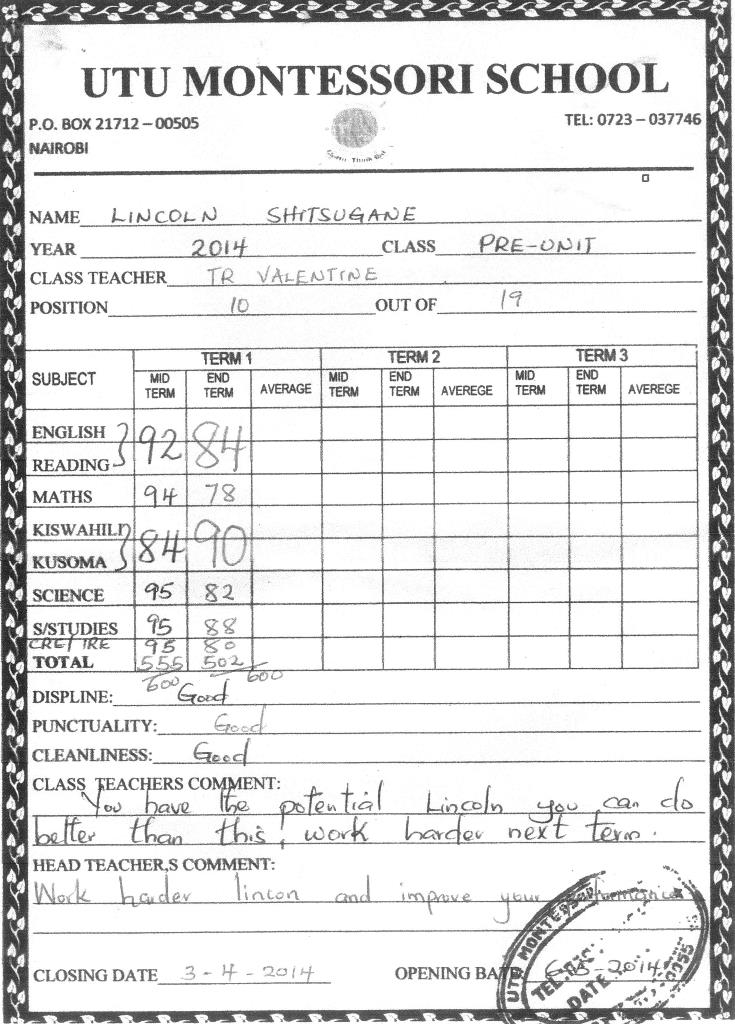 UTU MONTESSORI SCHOOL
P.O. BOX 21712 – 00505
TEL: 0723 – 037746
NAIROBI
NAME LINCOLN SHITSUGANE
YEAR 2014 CLASS PRE-UNIT
CLASS TEACHER TR VALENTINE
POSITION 10 OUT OF 19
SUBJECT TERM 1 TERM 2 TERM 3
MID TERM END TERM AVERAGE MID TERM END TERM AVEREGE MID TERM END TERM AVEREGE
ENGLISH
READING 92 84
MATHS 94 78
KISWAHILI
KUSOMA 84 90
SCIENCE 95 82
S/STUDIES 95 88
CRE/IRE 95 80
TOTAL 555 502
600 600
DISPLINE: Good
PUNCTUALITY: Good
CLEANLINESS: Good
CLASS TEACHERS COMMENT:
You have the potential Lincoln you can do
better than this, work harder next term.
HEAD TEACHER,S COMMENT:
Work harder lincon and improve your
CLOSING DATE 3-4-2014 OPENING DATE -2014
UTU MONTESSORI
TEL:
DATE